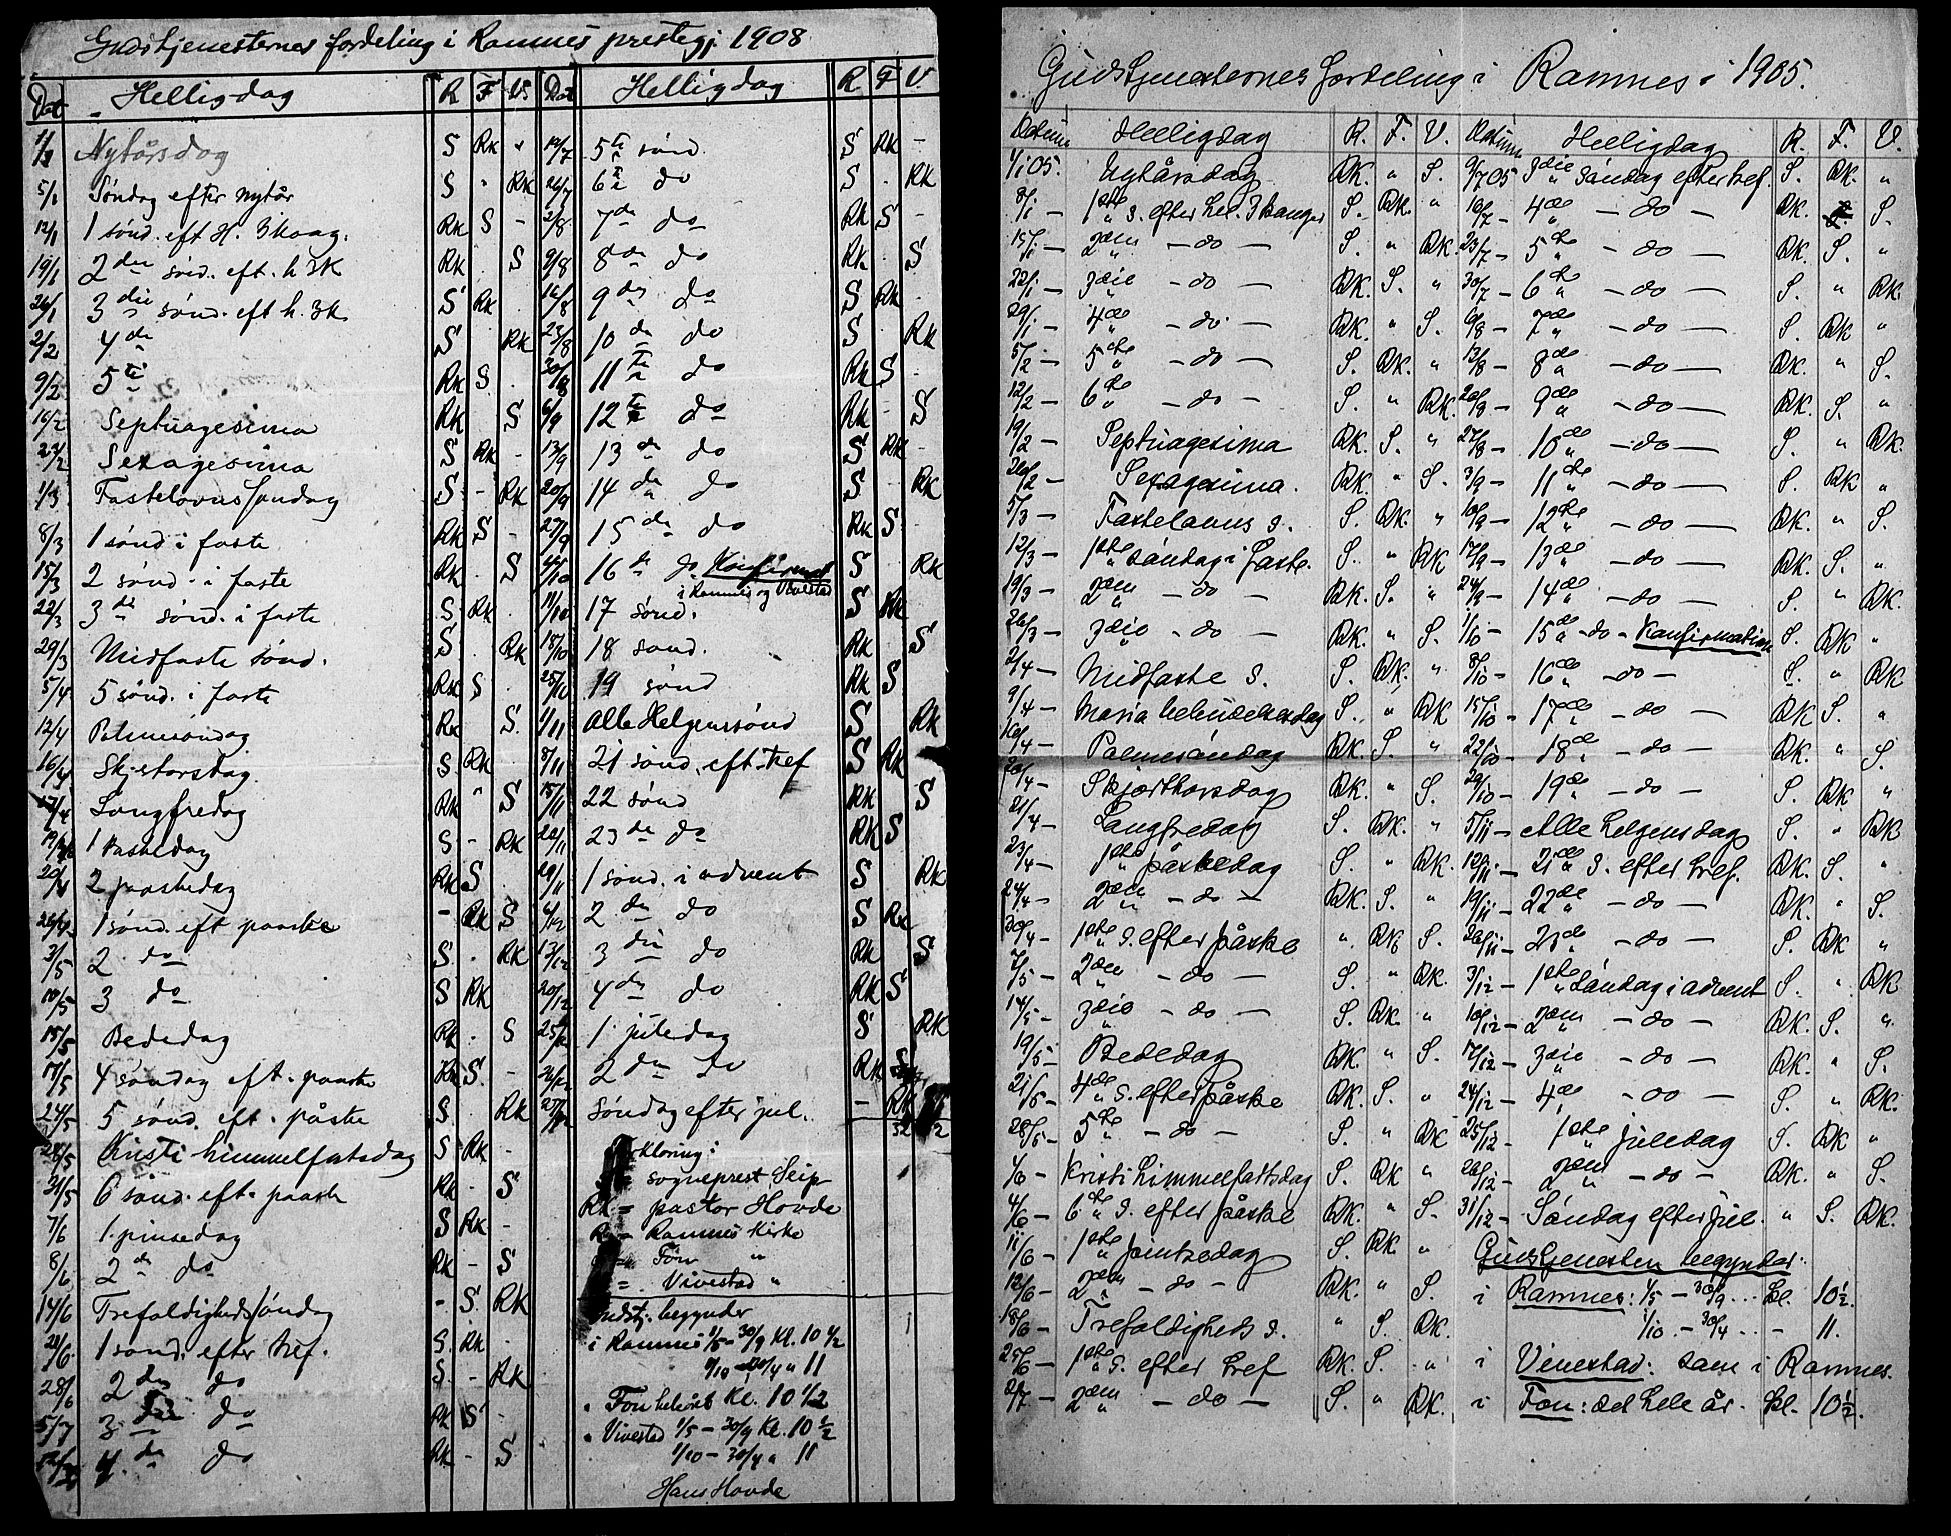 Gudstjenesternes fordeling i Ramnes prestegj. 1908
Dat Helligdag R F V. Dat Helligdag R F V
1/1 Nytårsdag S RK " 19/7 5te sønd. S RK -
5/1 Søndag efter nytår S " RK 26/7 6te do S - RK
12/1 1 sønd. eft H. 3 kong. RK S - 2/8 7de do RK S -
19/1 2den sønd. eft. h 3K RK . S 9/8 8de do RK . S
26/1 3die sønd. eft h. 3K S RK 16/8 9de do S RK .
2/2 4de S RK 23/8 10de do S RK
9/2 5te RK S . 30/8 11te do RK S -
16/2 Septuagesima RK S 6/9 12te do RK - S
23/2 Sexagesima S RK - 13/9 13de do S RK -
1/3 Fastelavnssøndag S - RK 20/9 14de do S RK
8/3 1 sønd i faste RK S - 27/9 15de do RK S
15/3 2 sønd. i faste RK . S 4/10 16de do Konfirmat. S RK
i Ramnes og Vivestad
22/3 3de sønd. i faste S RK . 11/10 17 sønd. S RK
29/3 Midfaste sønd. S . RK 18/10 18 sønd. RK S
5/4 5 sønd. i faste RK S . 25/10 19 sønd RK S
12/4 Palmesøndag RK S. 1/11 Alle Helgenssønd S RK
16/4 Skjetorsdag S RK 8/11 21 sønd. eft. tref S RK
17/4 Langfredag RK " S 15/11 22 sønd RK S
19/4 1 paaskedag S - RK 22/11 23de do RK S
20/4 2 paaskedag RK S . 29/11 1 sønd. i advent S RK
26/4 1 sønd. eft paaske - RK S 6/12 2den do S RK
3/5 2 do S . RK 13/12 3die do RK S
10/5 3 do S RK 20/12 4de do RK S
15/5 Bededag RK . S 25/12 1. juledag S RK
17/5 4 søndag eft. paaske RK S. - 26/12 2den do RK S
24/5 5 sønd. eft. påske S . RK 27/12 Søndag efter jul. - RK S
28/5 Kristi himmelfartsdag S RK - Forklaring:
31/5 6 sønd. eft. paaske RK - S S = sogneprest Seip
7/6 1. pinsedag S RK - RK = pastor Hovde
8/6 2den do RK - S R = Ramnes Kirke
= Fon "
= Vivestad "
14/6 Trefoldighedssøndag - S. RK Gudstj. begynder
21/6 1 sønd. efter tref. S. RK - i Ramnes 1/5 - 30/9 Kl. 10 1/2
1/10 - 30/4 " 11
28/6 2den do S. - RK " Fon heleåret Kl. 10 1/2
5/7 3die do RK S - " Vivestad 1/5 - 30/9 Kl. 10 1/2
12/7 4de do RK - S 1/10 - 30/4 " 11
Hans Hovde
Gudstjenesternes fordeling i Ramnes i 1905.
Datum Helligdag R. F. V. Datum Helligdag R. F. V.
1/1 05. Nytårsdag RK. " S. 9/7 05 3die søndag efter tref. S. RK. "
8/1 - 1ste s. efter hel. 3 konger S. RK. " 16/7 - 4de - do - RK. " S.
15/1 - 2den - do - S. " RK. 23/7 - 5te - do - RK. S. "
22/1 - 3die - do - RK. S. " 30/7 - 6te - do - S. " RK.
29/1 - 4de - do - RK. " S. 6/8 - 7de - do - S. RK "
5/2 - 5te - do - S. RK. " 13/8 - 8de - do - RK. " S.
12/2 - 6te - do - S. " RK. 20/8 - 9de - do - RK. S. "
19/2 - Septuagesima RK. S. " 27/8 - 10de - do - S. " RK.
26/2 - Sexagesima. RK. " S. 3/9 - 11te - do - S. RK "
5/3 - Fastelavns s. S. RK. " 10/9 - 12te - do - RK. " S.
12/3 - 1ste søndag i faste. S. " RK 17/9 - 13de - do - RK. S. "
19/3 - 2den - do - RK. S. " 24/9 - 14de - do - S. " RK.
26/3 - 3die - do - RK. " S. 1/10 - 15de - do - Konfirmation S. RK "
2/4 - Midfaste s. S. RK. " 8/10 - 16de - do - S. " RK
9/4 - Maria bebudelsesdag S. " RK 15/10 - 17de - do - RK S. "
16/4 - Palmesøndag RK. S. " 22/10 - 18de - do - RK. " S.
20/4 - Skjærthorsdag RK. " S. 29/10 - 19de - do - S. RK "
21/4 - Langfredag S. RK. " 5/11 - Alle helgensdag S. " RK
23/4 - 1ste påskedag S. " RK. 12/11 - 21de s. efter tref. RK. S. "
24/4 - 2den - do - RK. S. " 19/11 - 22de - do - RK. " S.
30/4 - 1ste s. efter påske " RK S. 26/11 - 23de - do - S. RK "
7/5 - 2den - do - S. " RK. 3/12 - 1ste søndag i advent S. " RK
14/5 - 3die - do - S. RK. " 10/12 - 2den - do - RK. S. "
19/5 - Bededag RK. " S. 17/12 - 3die - do - RK. " S.
21/5 - 4de s. efter påske RK. S. " 24/12 - 4de - do - S. " RK.
28/5 - 5te - do - S. " RK 25/12 - 1ste juledag S. RK "
1/6 - Kristi himmelfartsdag S. RK " 26/12 - 2den - do - RK. " S.
4/6 - 6te s. efter påske RK. " S. 31/12 - Søndag efter jul. " S. RK.
11/6 - 1ste pintsedag S. RK. " Gudstjenesten begynder:
12/6 - 2den - do - RK. " S. i Ramnes: 1/5 - 30/9 ... kl. 10 1/2.
18/6 - Trefoldigheds s. " S. RK. 1/10 - 30/4 ... - 11.
25/6 - 1ste s. efter tref RK. S. " i Vivestad: som i Ramnes.
2/7 - 2den - do - S. " RK. i Fon: det hele år. kl. 10 1/2.